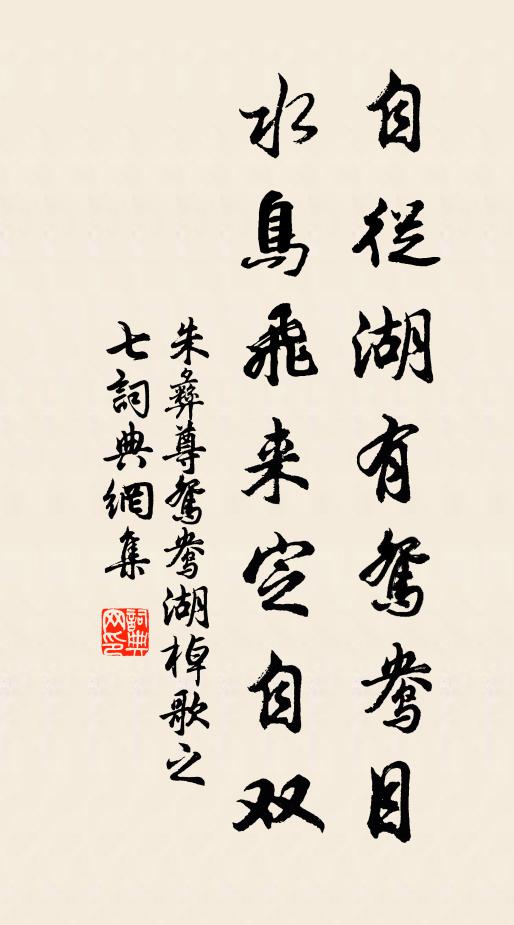 自從湖有鴛鴦目
水鳥飛来定自双
朱彝尊鴛鴦湖棹歌之
七詞典網集
詞典网印